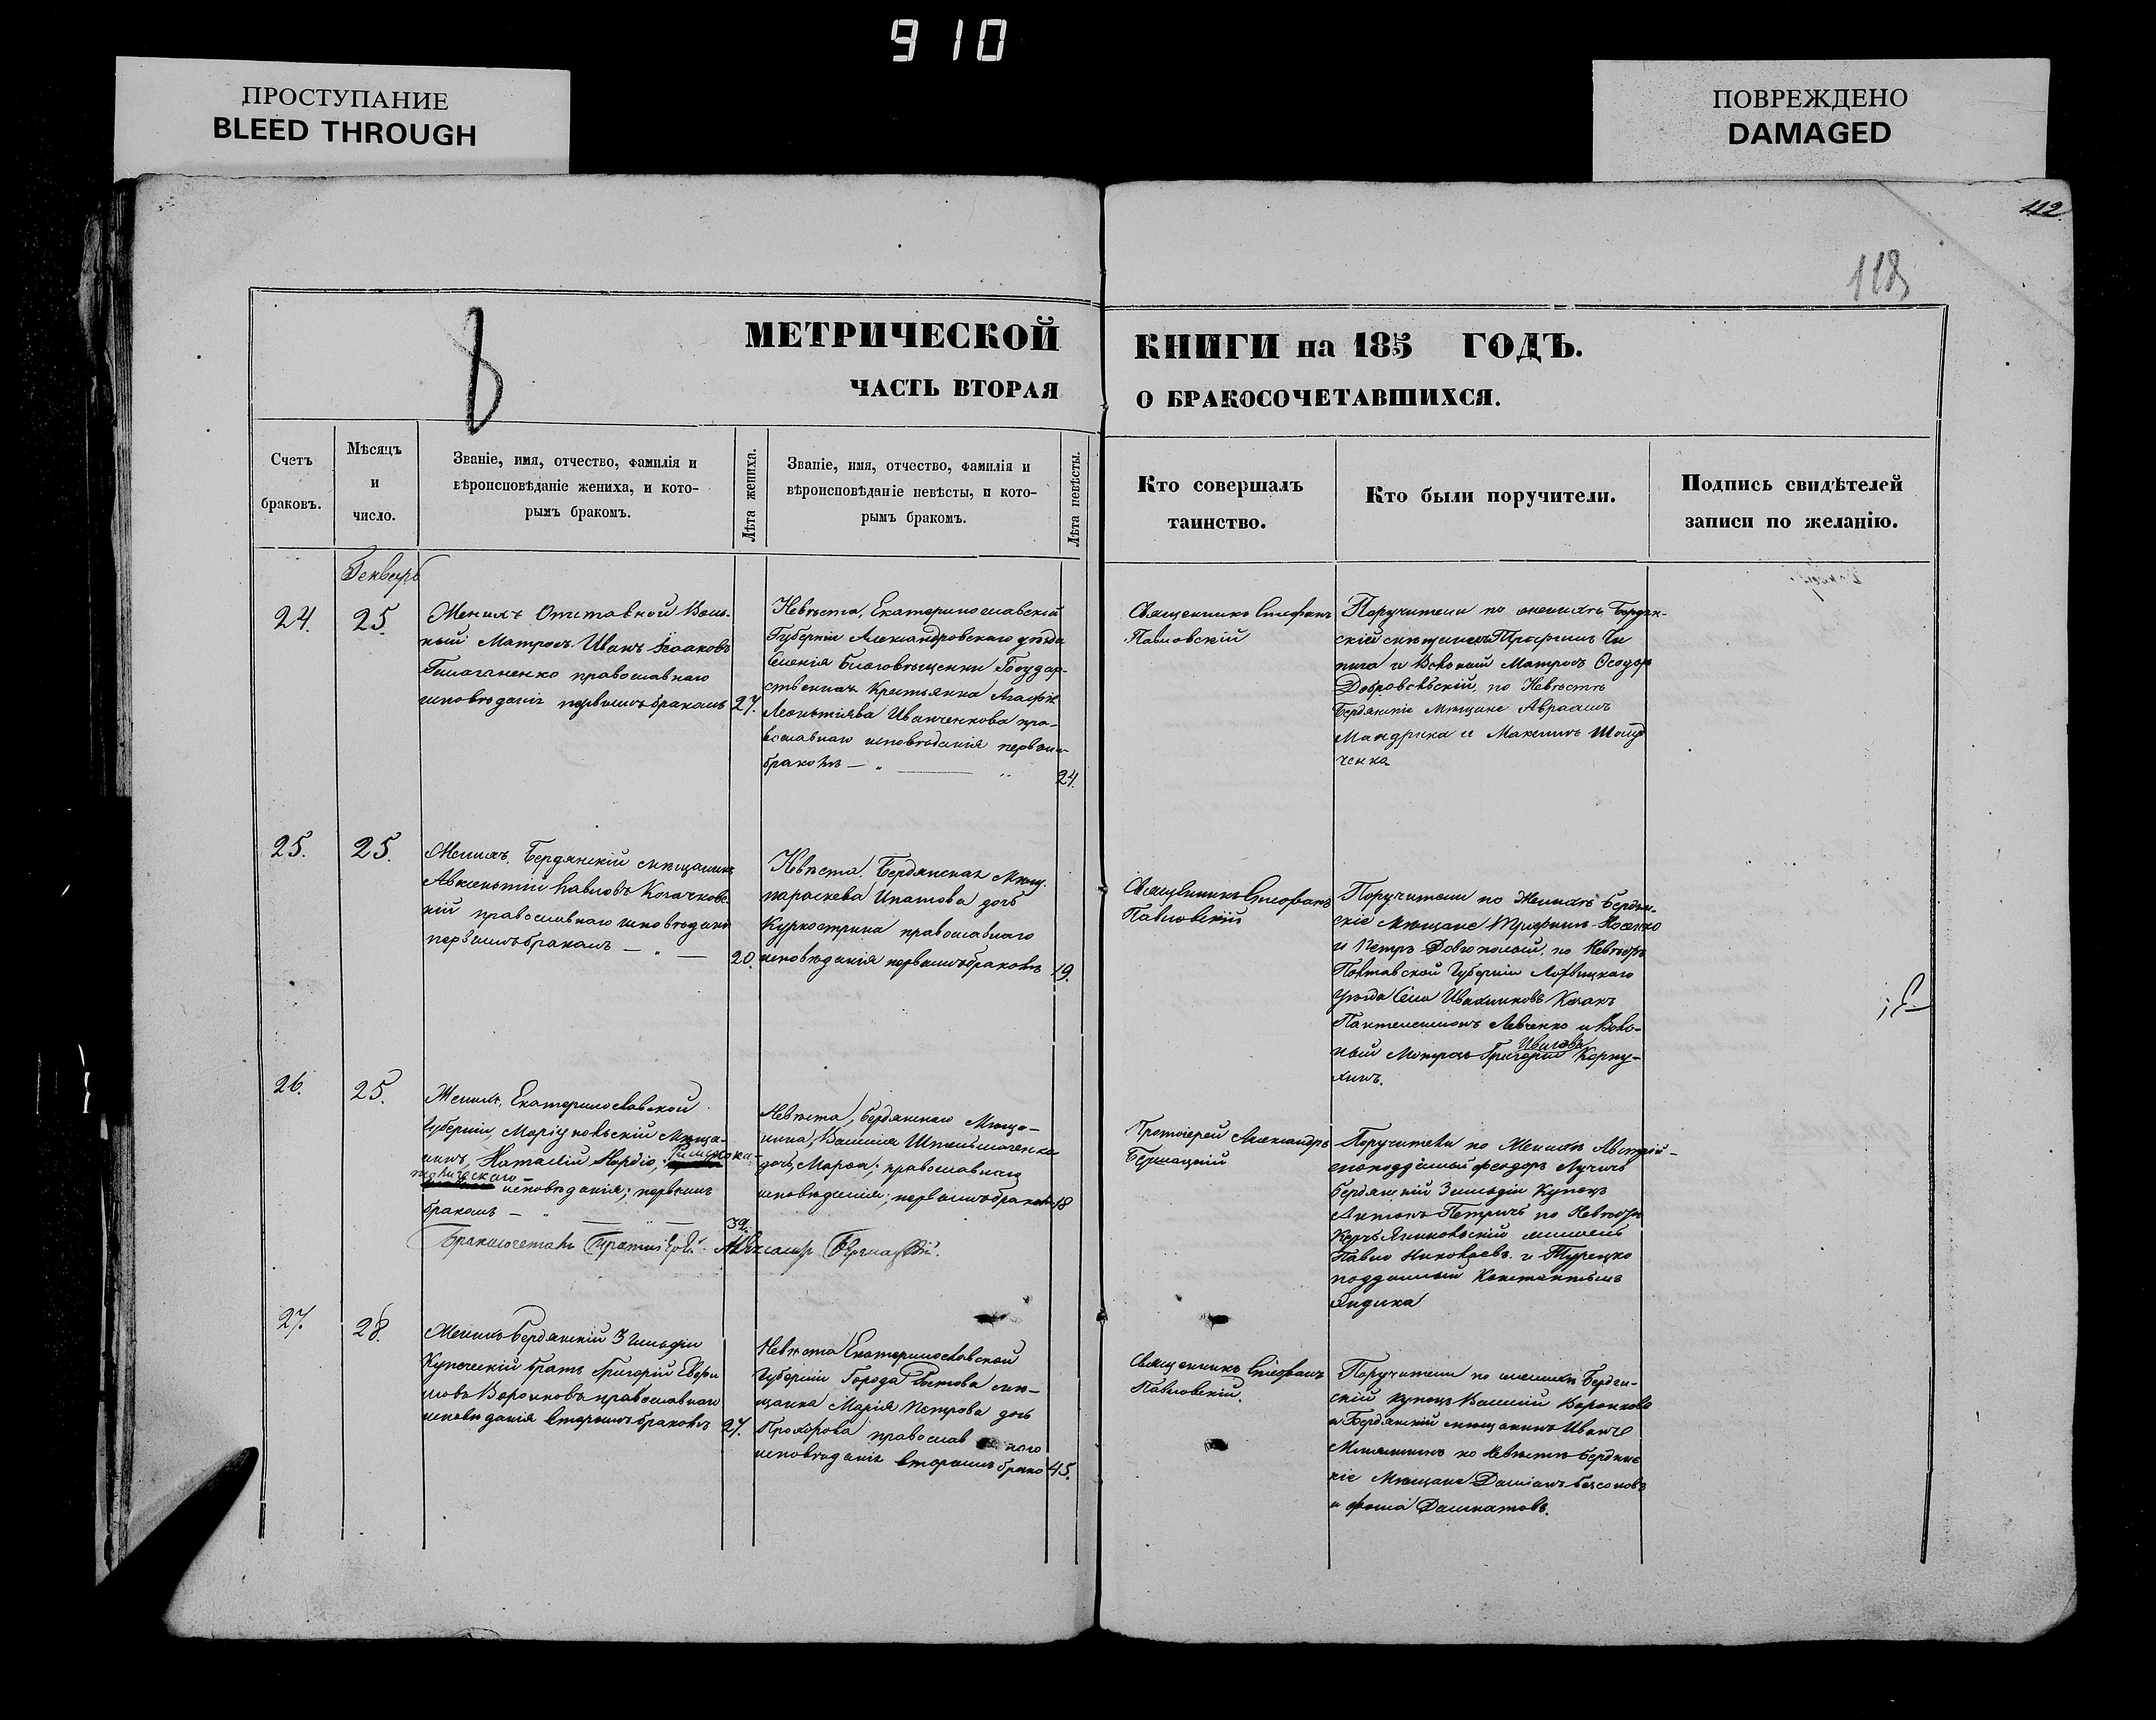 910
ПРОСТУПАНИЕ
BLEED THROUGH
ПОВРЕЖДЕНО
DAMAGED
112.
118
8
МЕТРИЧЕСКОЙ
ЧАСТЬ ВТОРАЯ
КНИГИ на 185 ГОДЪ.
О БРАКОСОЧЕТАВШИХСЯ.
Счетъ
браковъ.
Мѣсяцъ
и
число.
Званіе, имя, отчество, фамилія и
вѣроисповѣданіе жениха, и кото-
рымъ бракомъ.
Лѣта жениха.
Званіе, имя, отчество, фамилія и
вѣроисповѣданіе невѣсты, и кото-
рымъ бракомъ.
Лѣта невѣсты.
Кто совершалъ
таинство.
Кто были поручители.
Подпись свидѣтелей
записи по желанію.
Генварь
24.
25.
Женихъ Отставной Воль-
ный Матросъ Иванъ
православнаго
исповѣданія первымъ бракомъ
27.
Невѣста, Екатеринославской
Губерніи Александровскаго уѣзда
Селенія Благовѣщенки Государ-
ственная Крестьянка
Леонтіева Иванченкова пра-
вославнаго исповѣданія первымъ
бракомъ — „ — „
24.
Священникъ Стефанъ
Павловскій
Поручители по женихѣ Бердян-
скій мѣщанинъ Трофимъ
и Вольный Матросъ Ѳеодоръ
Добровольскій, по Невѣстѣ
Бердянскіе Мѣщане Авраамъ
Мандрика и Максимъ
ченка
25.
25.
Женихъ. Бердянскій мѣщанинъ
Авксентій Павловъ Козачковс-
кій православнаго исповѣданія
первымъ бракомъ — „ —
20.
Невѣста. Бердянская Мѣщ.
Параскева Ипатова дочь
православнаго
исповѣданія первымъ бракомъ
19.
Священникъ Стефанъ
Павловскій
Поручители по Женихѣ Бердян-
скіе Мѣщане Трофимъ Носенко
и Петръ Довгополый, по Невѣстѣ
Полтавской Губерніи Лохвицкаго
Уѣзда Села Козакъ
Пантелеимонъ Левченко и Воль-
ный Матросъ Григорій Ивановъ Корпу-
хинъ.
26.
25.
Женихъ, Екатеринославской
Губерніи, Маріупольскій Мѣща-
нинъ, Римско-ка-
толическаго исповѣданія; первымъ
бракомъ — „ — „ —
32.
Невѣста, Бердянскаго Мѣща-
нина, Василія
дочь, Марѳа; православнаго
исповѣданія; первымъ бракомъ
18
Бракосочеталъ Протоіерей Александръ
Протоіерей Александръ
Поручители по Женихѣ Австрій-
скоподданный Ѳеодоръ Лучичъ
Бердянскій 3 гильдіи Купецъ
Антонъ Петричъ по Невѣстѣ
Керчь Яникольскій
Павло Николаевъ и Турецко
подданный Константинъ
27.
28.
Женихъ Бердянскій 3 гильдіи
Купеческій братъ Григорій
Воронковъ православнаго
исповѣданія вторымъ бракомъ
27.
Невѣста Екатеринославской
Губерніи Города Ростова мѣ-
щанка Марія Петрова дочь
Прохорова православнаго
исповѣданія вторымъ брако
45.
Священникъ Стефанъ
Павловскій.
Поручители по женихѣ Бердян-
скій купецъ Василій Воронковъ
и Бердянскій мѣщанинъ Иванъ
по Невѣстѣ Бердянс
кіе Мѣщане Даміанъ Безсоновъ
и Ѳома Дашкатовъ.